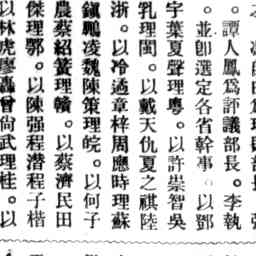 。譚人鳳爲評議部長。李執
。並卽選定各省幹事。以鄧
宇葉夏聲理粵。以許崇智吳
乳理閩。以戴天仇夏之麒陸
浙。以冷遹章梓周應時理蘇
鎭鵬凌魏陳策理皖。以何子
農蔡紹簧理贛。以蔡濟民田
傑理鄂。以陳强程潜程子楷
以林虎廖轟曾尚武理桂。以